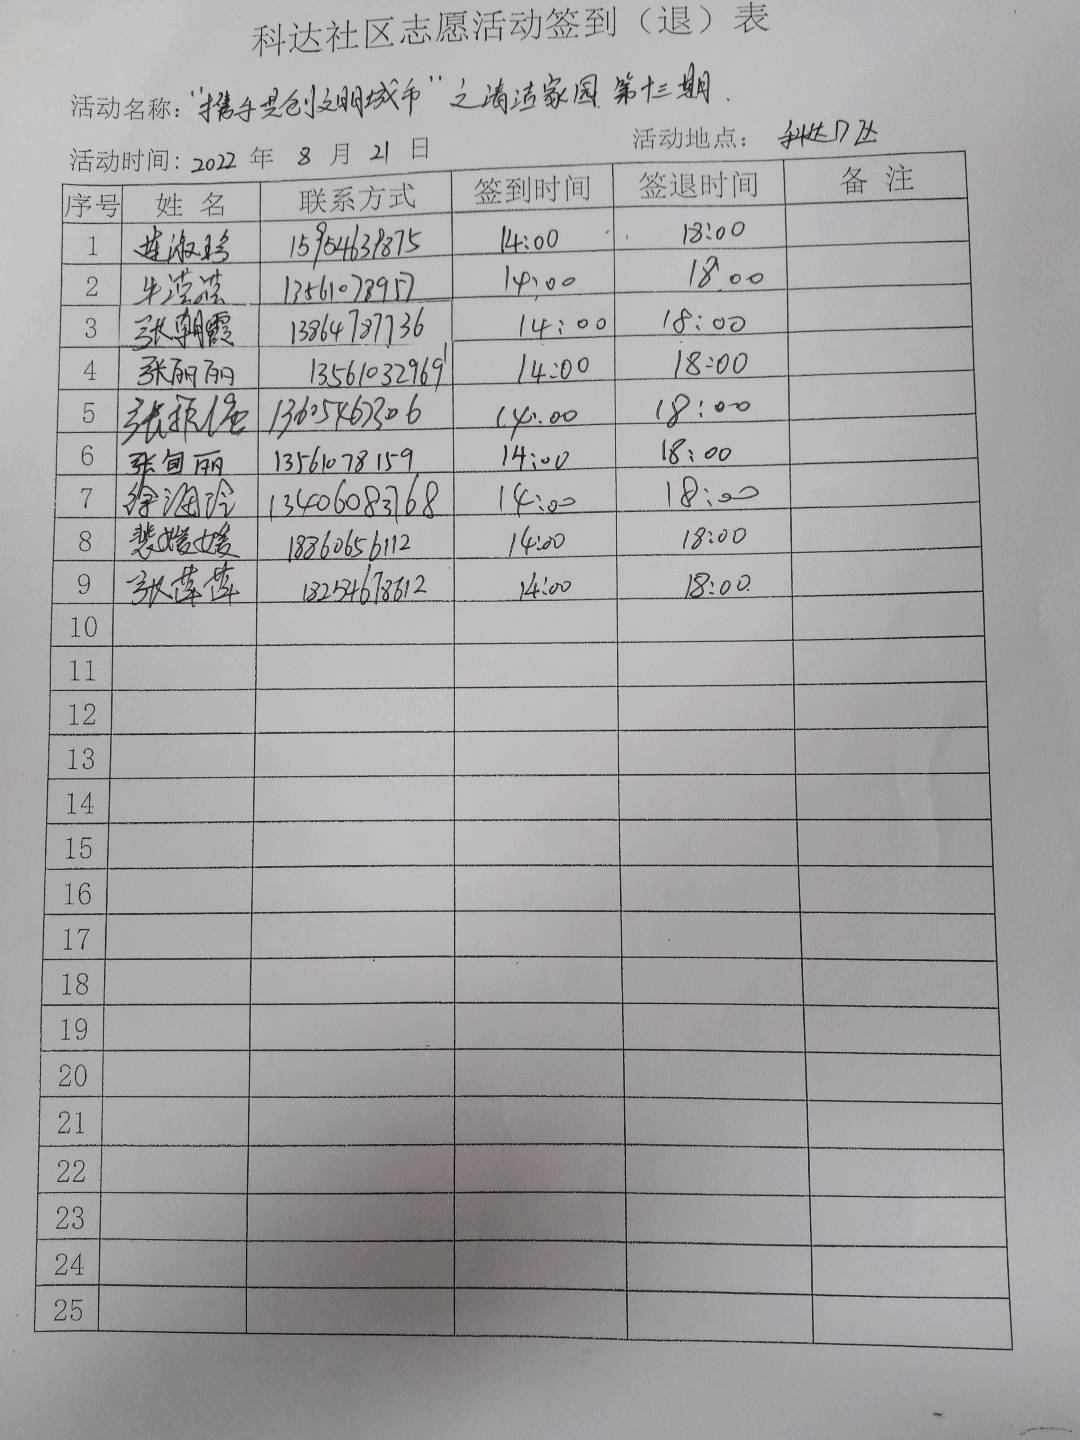 科达社区志愿活动签到（退）表
活动名称："携手共创文明城市"之清洁家园 第十三期.
活动时间：2022 年 8 月 21 日 活动地点： 科达
序号 姓 名 联系方式 签到时间 签退时间 备 注
1 淑珍 15954639875 14:00 18:00
2 牛滢滢 13561078957 14:00 18:00
3 张朝霞 13864787736 14:00 18:00
4 张丽丽 13561032969 14:00 18:00
5 张 14:00 18:00
6 张旬丽 13561078159 14:00 18:00
7 徐海玲 13406083768 14:00 18:00
8 裴媛媛 18360656112 14:00 18:00
9 张莲莲 18254678612 14:00 18:00
10
11
12
13
14
15
16
17
18
19
20
21
22
23
24
25